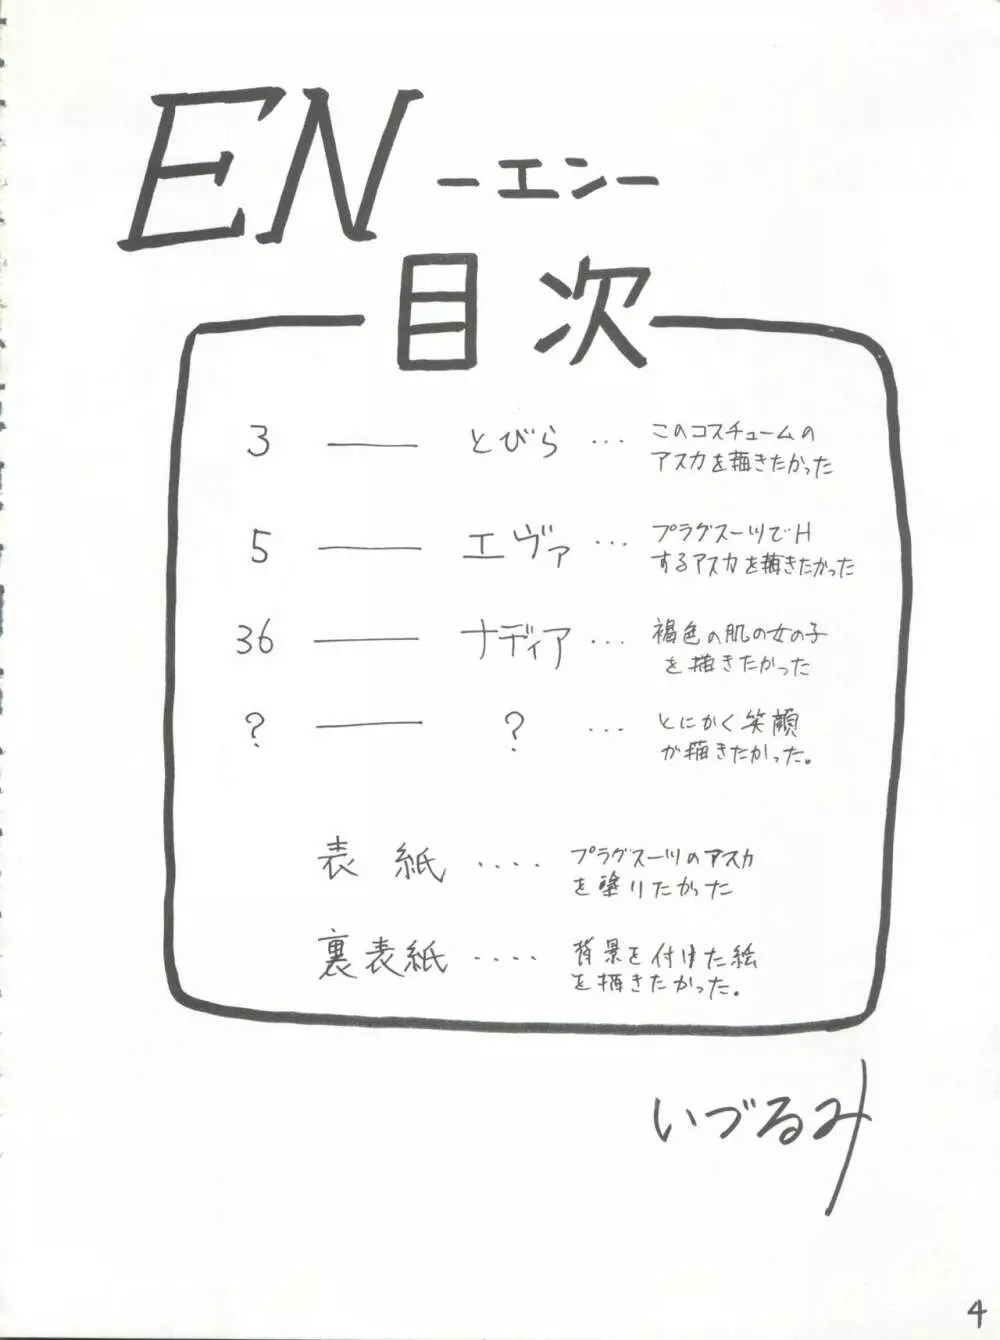 EN －エン－
目次
3 ── とびら … このコスチュームの
アスカを描きたかった
5 ── エヴァ … プラグスーツでH
するアスカを描きたかった
36 ── ナディア … 褐色の肌の女の子
を描きたかった
? ── ? … とにかく笑顔
が描きたかった。
表紙 ‥‥ プラグスーツのアスカ
を塗りたかった
裏表紙 ‥‥ 背景を付けた絵
を描きたかった。
いづるみ
4